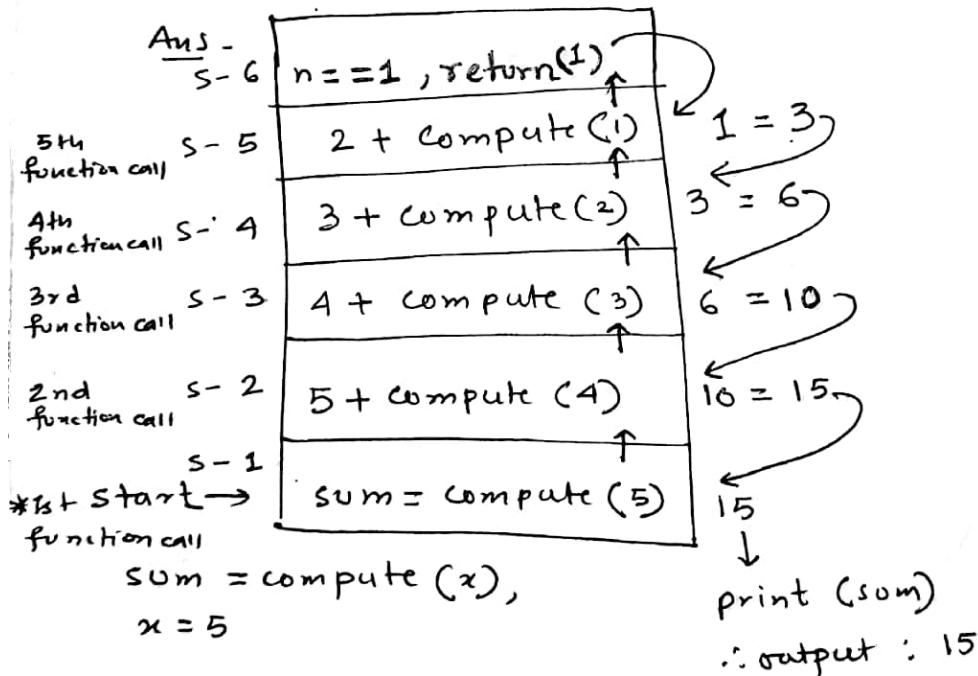 Ans -
S-6 n==1, return(1)
5th function call S-5 2 + compute (1) 1 = 3
4th function call S-4 3 + compute (2) 3 = 6
3rd function call S-3 4 + compute (3) 6 = 10
2nd function call S-2 5 + compute (4) 10 = 15
S-1
*1st start → sum = compute (5) 15
function call
sum = compute (x),
x = 5
print (sum)
∴ output : 15